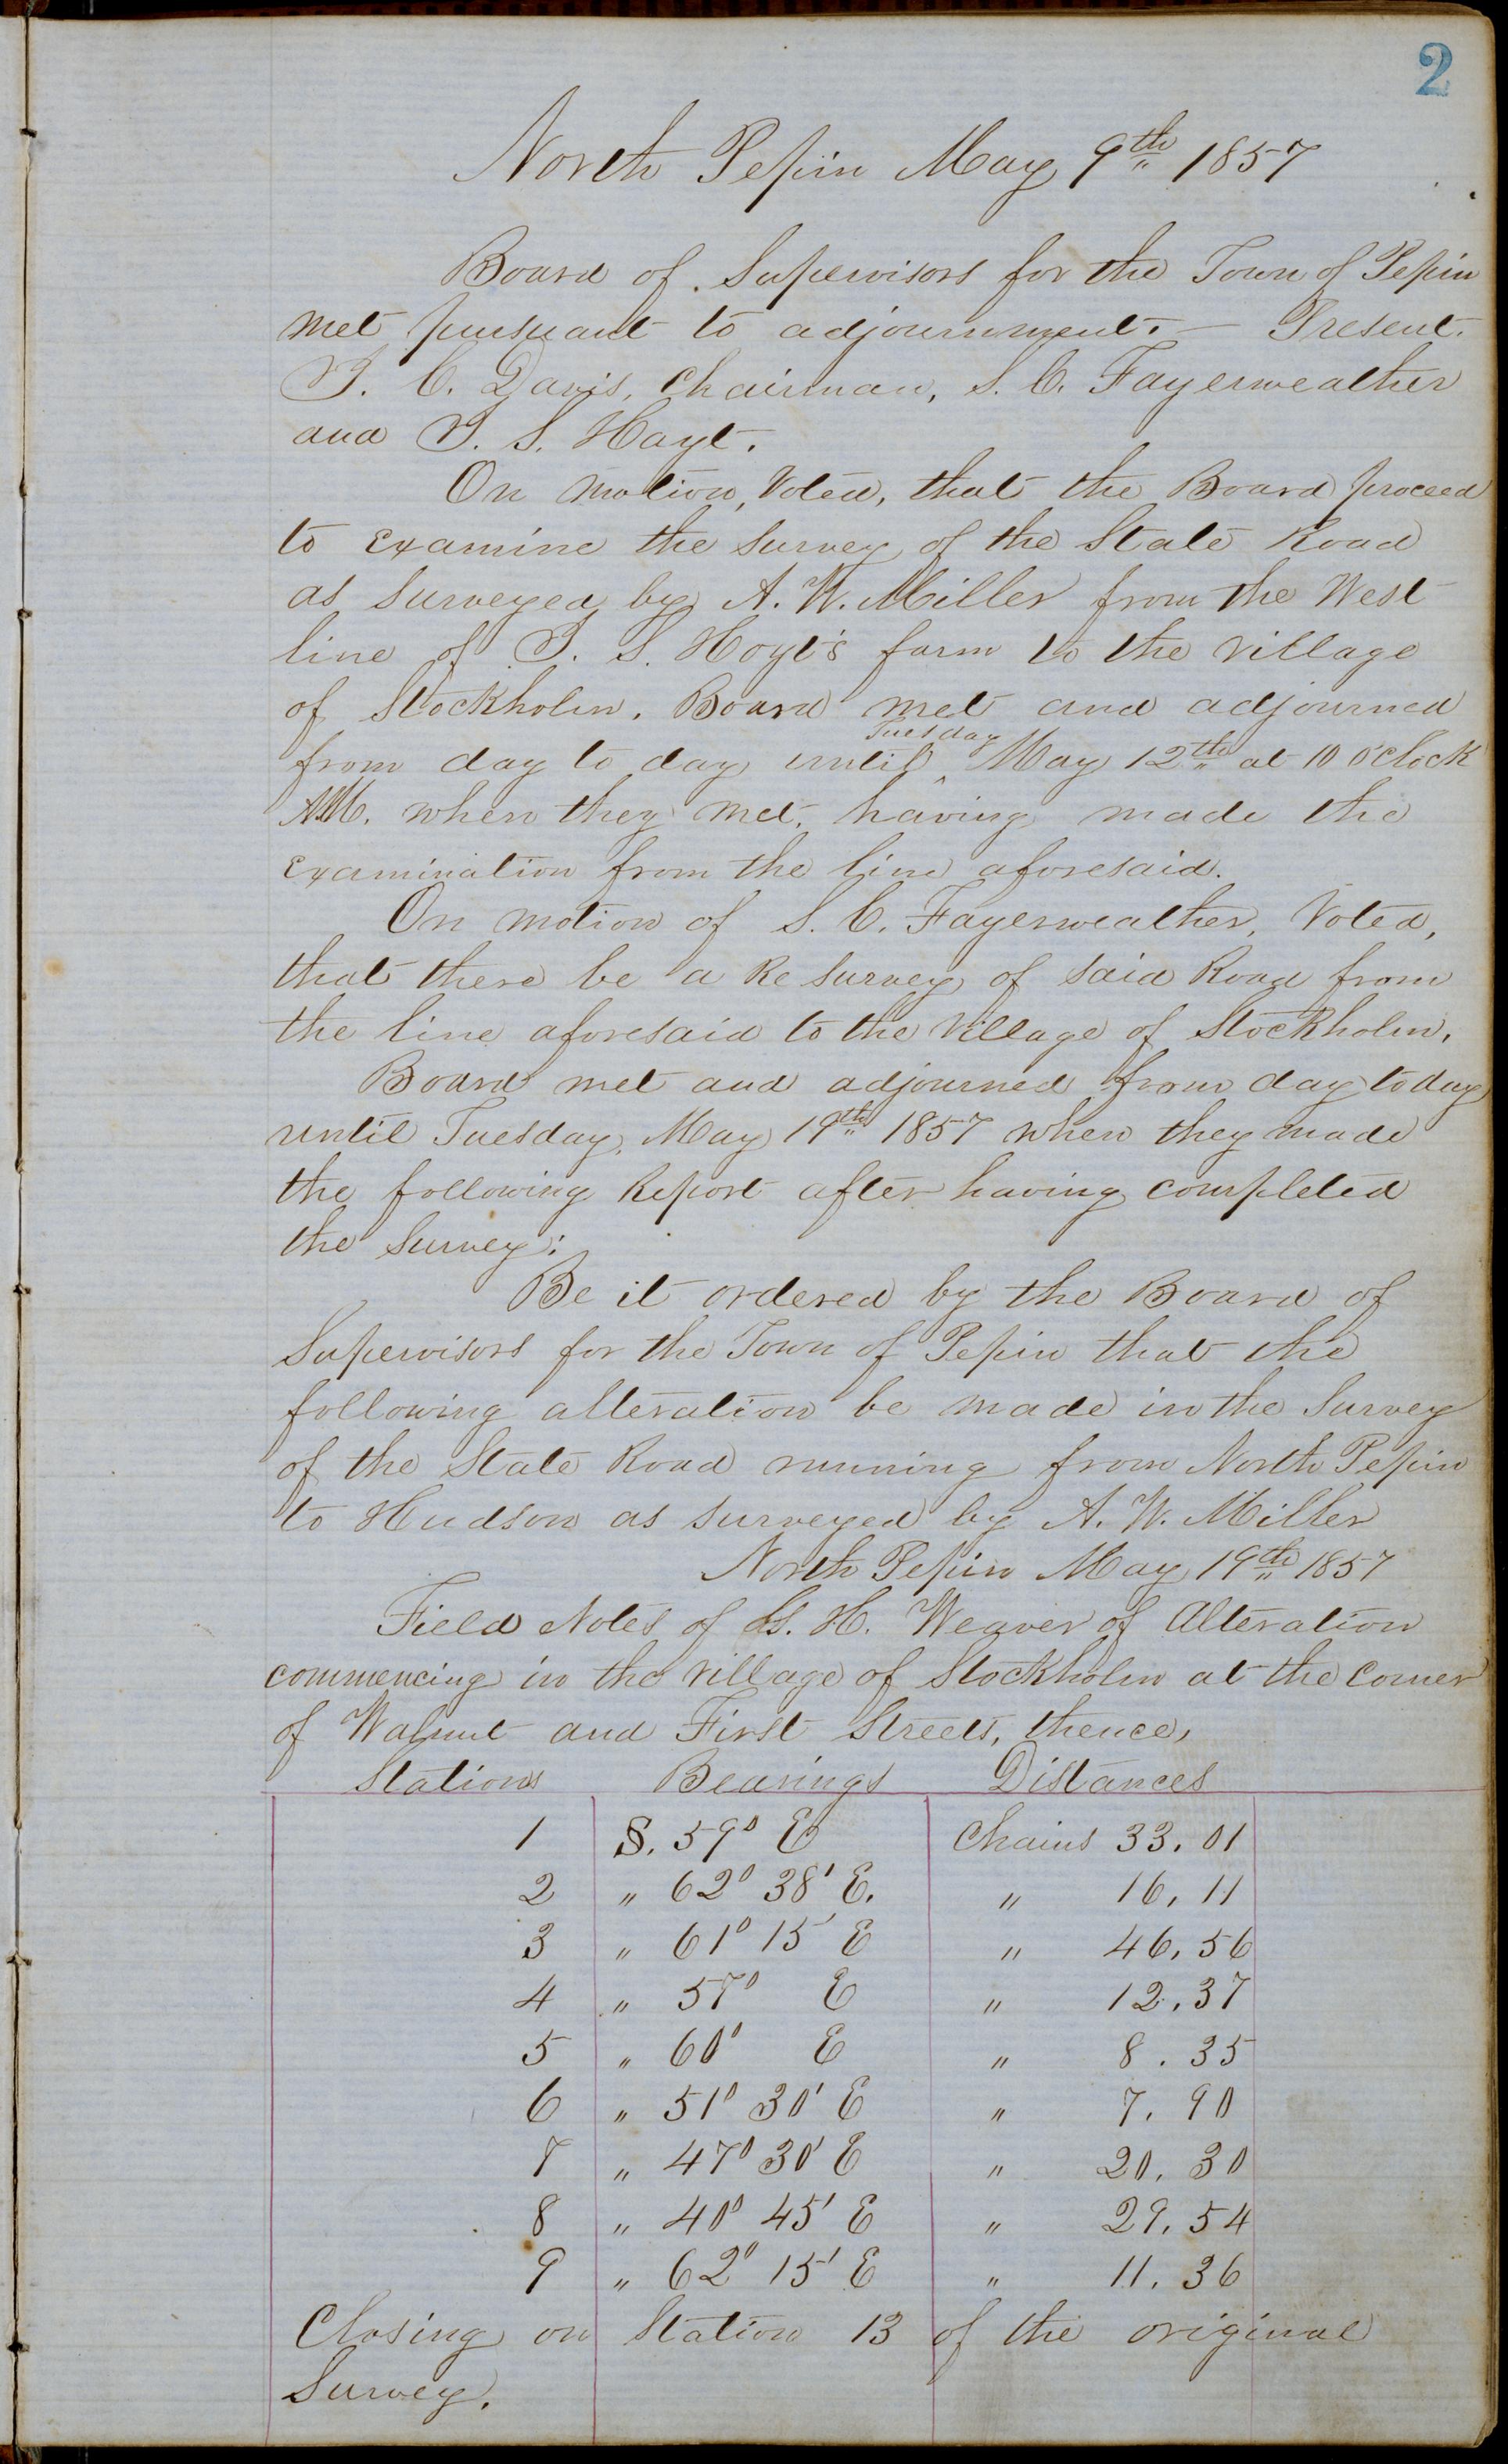 2
North Pepin May 9th 1857
Board of Supervisors for the Town of Pepin
met pursuant to adjournment. — Present.
P. C. Davis, Chairman, S. C. Fayerweather
and P. S. Hoyt.
On motion, Voted, that the Board proceed
to Examine the Survey of the State Road
as Surveyed by A. W. Miller from the West
line of P. S. Hoyt's farm to the village
of Stockholm. Board met and adjourned
from day to day until ^Tuesday May 12th at 10 O'clock
AM. when they met, having made the
Examination from the line aforesaid.
On motion of S. C. Fayerweather, Voted,
that there be a Re survey of said Road from
the line aforesaid to the Village of Stockholm.
Board met and adjourned from day to day
until Tuesday, May 19th 1857 when they made
the following Report after having completed
the Survey:
Be it ordered by the Board of
Supervisors for the Town of Pepin that the
following alteration be made in the Survey
of the State Road running from North Pepin
to Hudson as surveyed by A. W. Miller
North Pepin May 19th 1857
Field Notes of H. Weaver of Alteration
commencing in the village of Stockholm at the Corner
of Walnut and First Streets, thence,
Stations Bearings Distances
1 S. 59° E Chains 33.01
2 " 62° 38' E. " 16.11
3 " 61° 15' E " 46.56
4 " 57° E " 12.37
5 " 60° E " 8.35
6 " 51° 30' E " 7.90
7 " 47° 30' E " 20.30
8 " 40° 45' E " 29.54
9 " 62° 15' E " 11.36
Closing on Station 13 of the original
Survey.